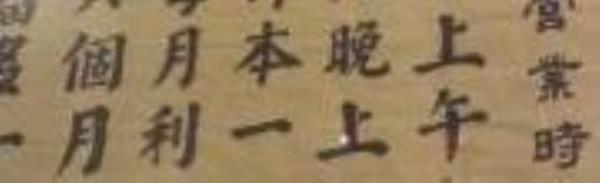 營業時
上午
晚上
本一
月利
個月